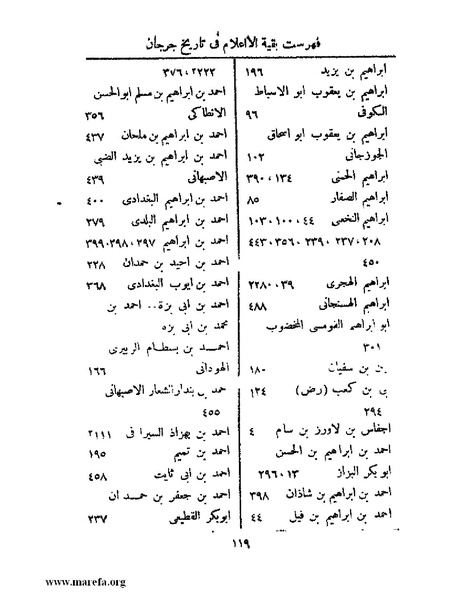 فهرست بقية الااعلام فى تاريخ جرجان
ابراهيم بن يزيد ١٩٦
ابراهيم بن يعقوب ابو الاسباط
الكوفى ٩٦
ابراهيم بن يعقوب ابو اسحاق
الجوزجانى ١٠٢
ابراهيم الحنى ١٣٤، ٣٩٠
ابراهيم الصفار ٨٥
ابراهيم النخعى ٤٤، ١٠٠، ١٠٣
٢٠٨، ٢٣٧، ٣٣٩، ٣٥٦، ٤٤٣
٤٥٠
ابراهيم الهجرى ٣٩، ٢٢٨
ابراهيم الهسنجانى ٤٨٨
ابو ابراهيم القومسى المخضوب
٣٠١
بن سفيان ١٨٠
بن كعب (رض) ١٣٤
٢٩٤
اجفاس بن لاورز بن سام ٤
احمد بن ابراهيم بن الحسن
ابوبكر البزاز ١٣، ٢٩٦
احمد بن ابراهيم بن شاذان ٣٩٨
احمد بن ابراهيم بن فيل ٤٤
٢٢٢، ٣٧٦
احمد بن ابراهيم بن مسلم ابو الحسن
الانطاكى ٣٥٦
احمد بن ابراهيم بن ملحان ٤٣٧
احمد بن ابراهيم بن يزيد الضبى
الاصبهانى ٤٣٩
احمد بن ابراهيم البغدادى ٤٠٠
احمد بن ابراهيم البلدى ٢٧٩
احمد بن ابراهيم ٢٩٧، ٣٩٨، ٣٩٩
احمد بن احيد بن حمدان ٢٢٨
احمد بن ايوب البغدادى ٣٦٨
احمد بن ابى بزة .. احمد بن
محمد بن ابى بزه
احمد بن بسطام الزبيرى
الهودانى ١٦٦
بن بندار الشعار الاصبهانى
٤٥٥
احمد بن بهزاذ السيرافى ١١١
احمد بن تميم ١٩٥
احمد بن ابى ثابت ٤٥٨
احمد بن جعفر بن حمدان
ابوبكر القطيعى ٢٣٧
١١٩
www.marefa.org